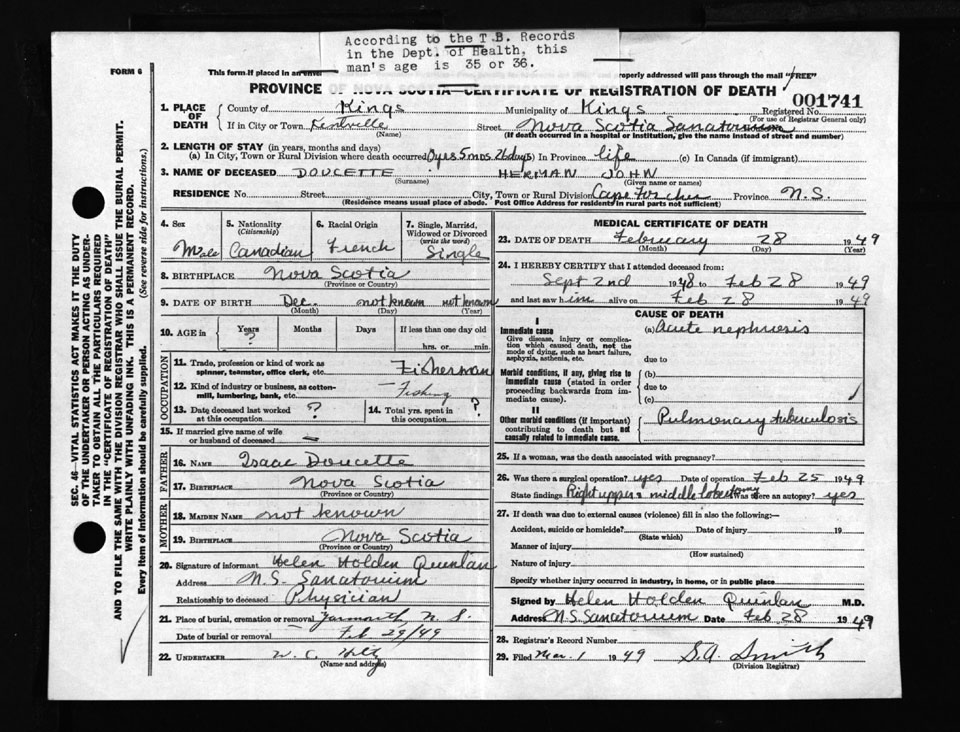 According to the T.B. Records
in the Dept. of Health, this
man's age is 35 or 36.
FORM 6
This form if placed in an enve
roperly addressed will pass through the mail "FREE"
PROVINCE OF NOVA SCOTIA—CERTIFICATE OF REGISTRATION OF DEATH
001741
1. PLACE OF DEATH
County of Kings Municipality of Kings Registered No.
(For use of Registrar General only)
If in City or Town Kentville Street Nova Scotia Sanatorium
(Name) (If death occurred in a hospital or institution, give the name instead of street and number)
2. LENGTH OF STAY (in years, months and days)
(a) In City, Town or Rural Division where death occurred 0 yrs 5 mos. 26 days (b) In Province life (c) In Canada (if immigrant)
3. NAME OF DECEASED DOUCETTE HERMAN JOHN
(Surname) (Given name or names)
RESIDENCE No. Street City, Town or Rural Division Cape Forchu Province N.S.
(Residence means usual place of abode. Post Office Address for residents in rural parts not sufficient)
4. Sex Male
5. Nationality (Citizenship) Canadian
6. Racial Origin French
7. Single, Married, Widowed or Divorced (write the word) Single
8. BIRTHPLACE Nova Scotia
(Province or Country)
9. DATE OF BIRTH Dec. not known not known
(Month) (Day) (Year)
10. AGE in Years ? Months Days If less than one day old
hrs. or min.
OCCUPATION
11. Trade, profession or kind of work as spinner, teamster, office clerk, etc. Fisherman
12. Kind of industry or business, as cotton-mill, lumbering, bank, etc. Fishing
13. Date deceased last worked at this occupation ?
14. Total yrs. spent in this occupation ?
15. If married give name of wife or husband of deceased —
FATHER
16. NAME Isaac Doucette
17. BIRTHPLACE Nova Scotia
(Province or Country)
MOTHER
18. MAIDEN NAME not known
19. BIRTHPLACE Nova Scotia
(Province or Country)
20. Signature of informant Helen Holden Quinlan
Address N.S. Sanatorium
Relationship to deceased Physician
21. Place of burial, cremation or removal Yarmouth, N.S.
Date of burial or removal Feb 29/49
22. UNDERTAKER W. C.
(Name and address)
MEDICAL CERTIFICATE OF DEATH
23. DATE OF DEATH February 28 1949
(Month) (Day) (Year)
24. I HEREBY CERTIFY that I attended deceased from:
Sept 2nd 1948 to Feb 28 1949
and last saw him alive on Feb 28 1949
CAUSE OF DEATH
I
Immediate cause
Give disease, injury or complication which caused death, not the mode of dying, such as heart failure, asphyxia, asthenia, etc.
(a) Acute nephrosis
due to
Morbid conditions, if any, giving rise to immediate cause (stated in order proceeding backwards from immediate cause).
(b)
due to
(c)
II
Other morbid conditions (if important) contributing to death but not causally related to immediate cause.
Pulmonary tuberculosis
25. If a woman, was the death associated with pregnancy?
26. Was there a surgical operation? yes Date of operation Feb 25 1949
State findings Right upper & middle lobectomy Was there an autopsy? yes
27. If death was due to external causes (violence) fill in also the following:—
Accident, suicide or homicide? Date of injury 19
(State which)
Manner of injury
(How sustained)
Nature of injury
Specify whether injury occurred in industry, in home, or in public place
Signed by Helen Holden Quinlan M.D.
Address N.S. Sanatorium Date Feb 28 1949
28. Registrar's Record Number
29. Filed Mar. 1 1949 S.A. Smith
(Division Registrar)
SEC. 46—VITAL STATISTICS ACT MAKES IT THE DUTY
OF THE UNDERTAKER OR PERSON ACTING AS UNDER-
TAKER TO OBTAIN ALL THE PARTICULARS REQUIRED
IN THE "CERTIFICATE OF REGISTRATION OF DEATH"
AND TO FILE THE SAME WITH THE DIVISION REGISTRAR WHO SHALL ISSUE THE BURIAL PERMIT.
WRITE PLAINLY WITH UNFADING INK. THIS IS A PERMANENT RECORD.
Every item of information should be carefully supplied. (See reverse side for instructions.)